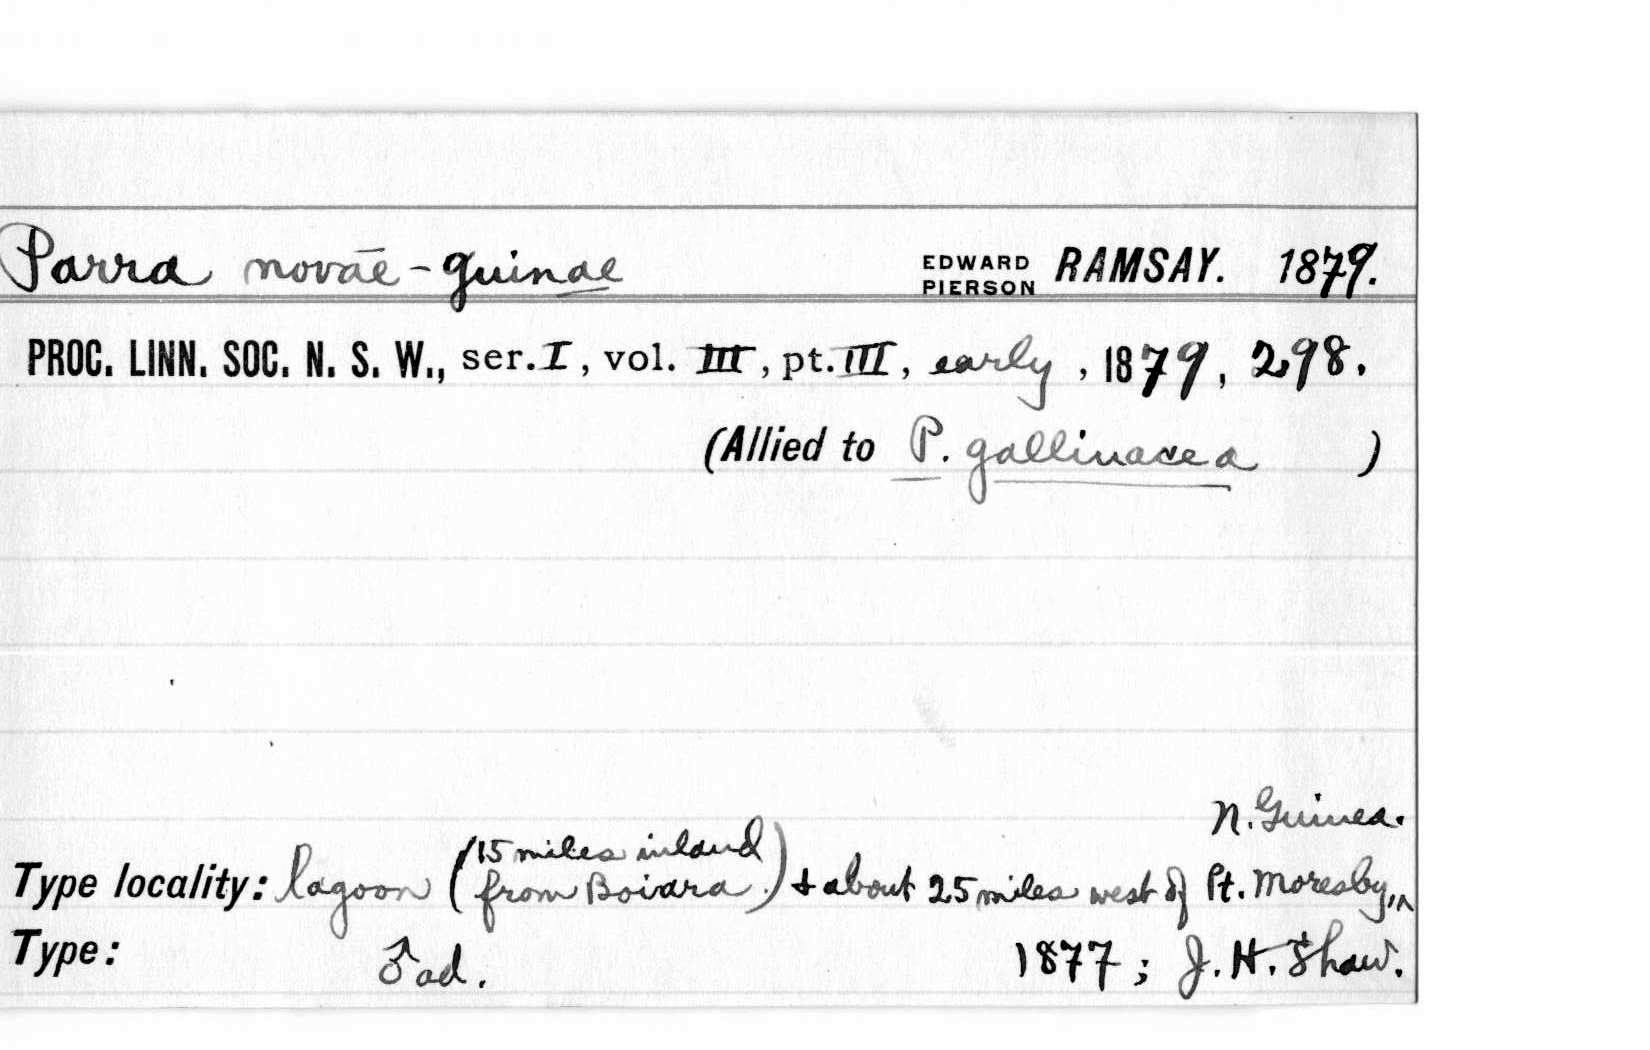 Parra novae-guinae EDWARD PIERSON RAMSAY. 1879.
PROC. LINN. SOC. N. S. W., ser. I, vol. III, pt. III, early, 1879, 298.
(Allied to P. gallinacea )
N. Guinea.
(15 miles inland
Type locality: lagoon from Boiara.) & about 25 miles west of Pt. Moresby,^
Type: ♂ ad. 1877; J. H. Shaw.